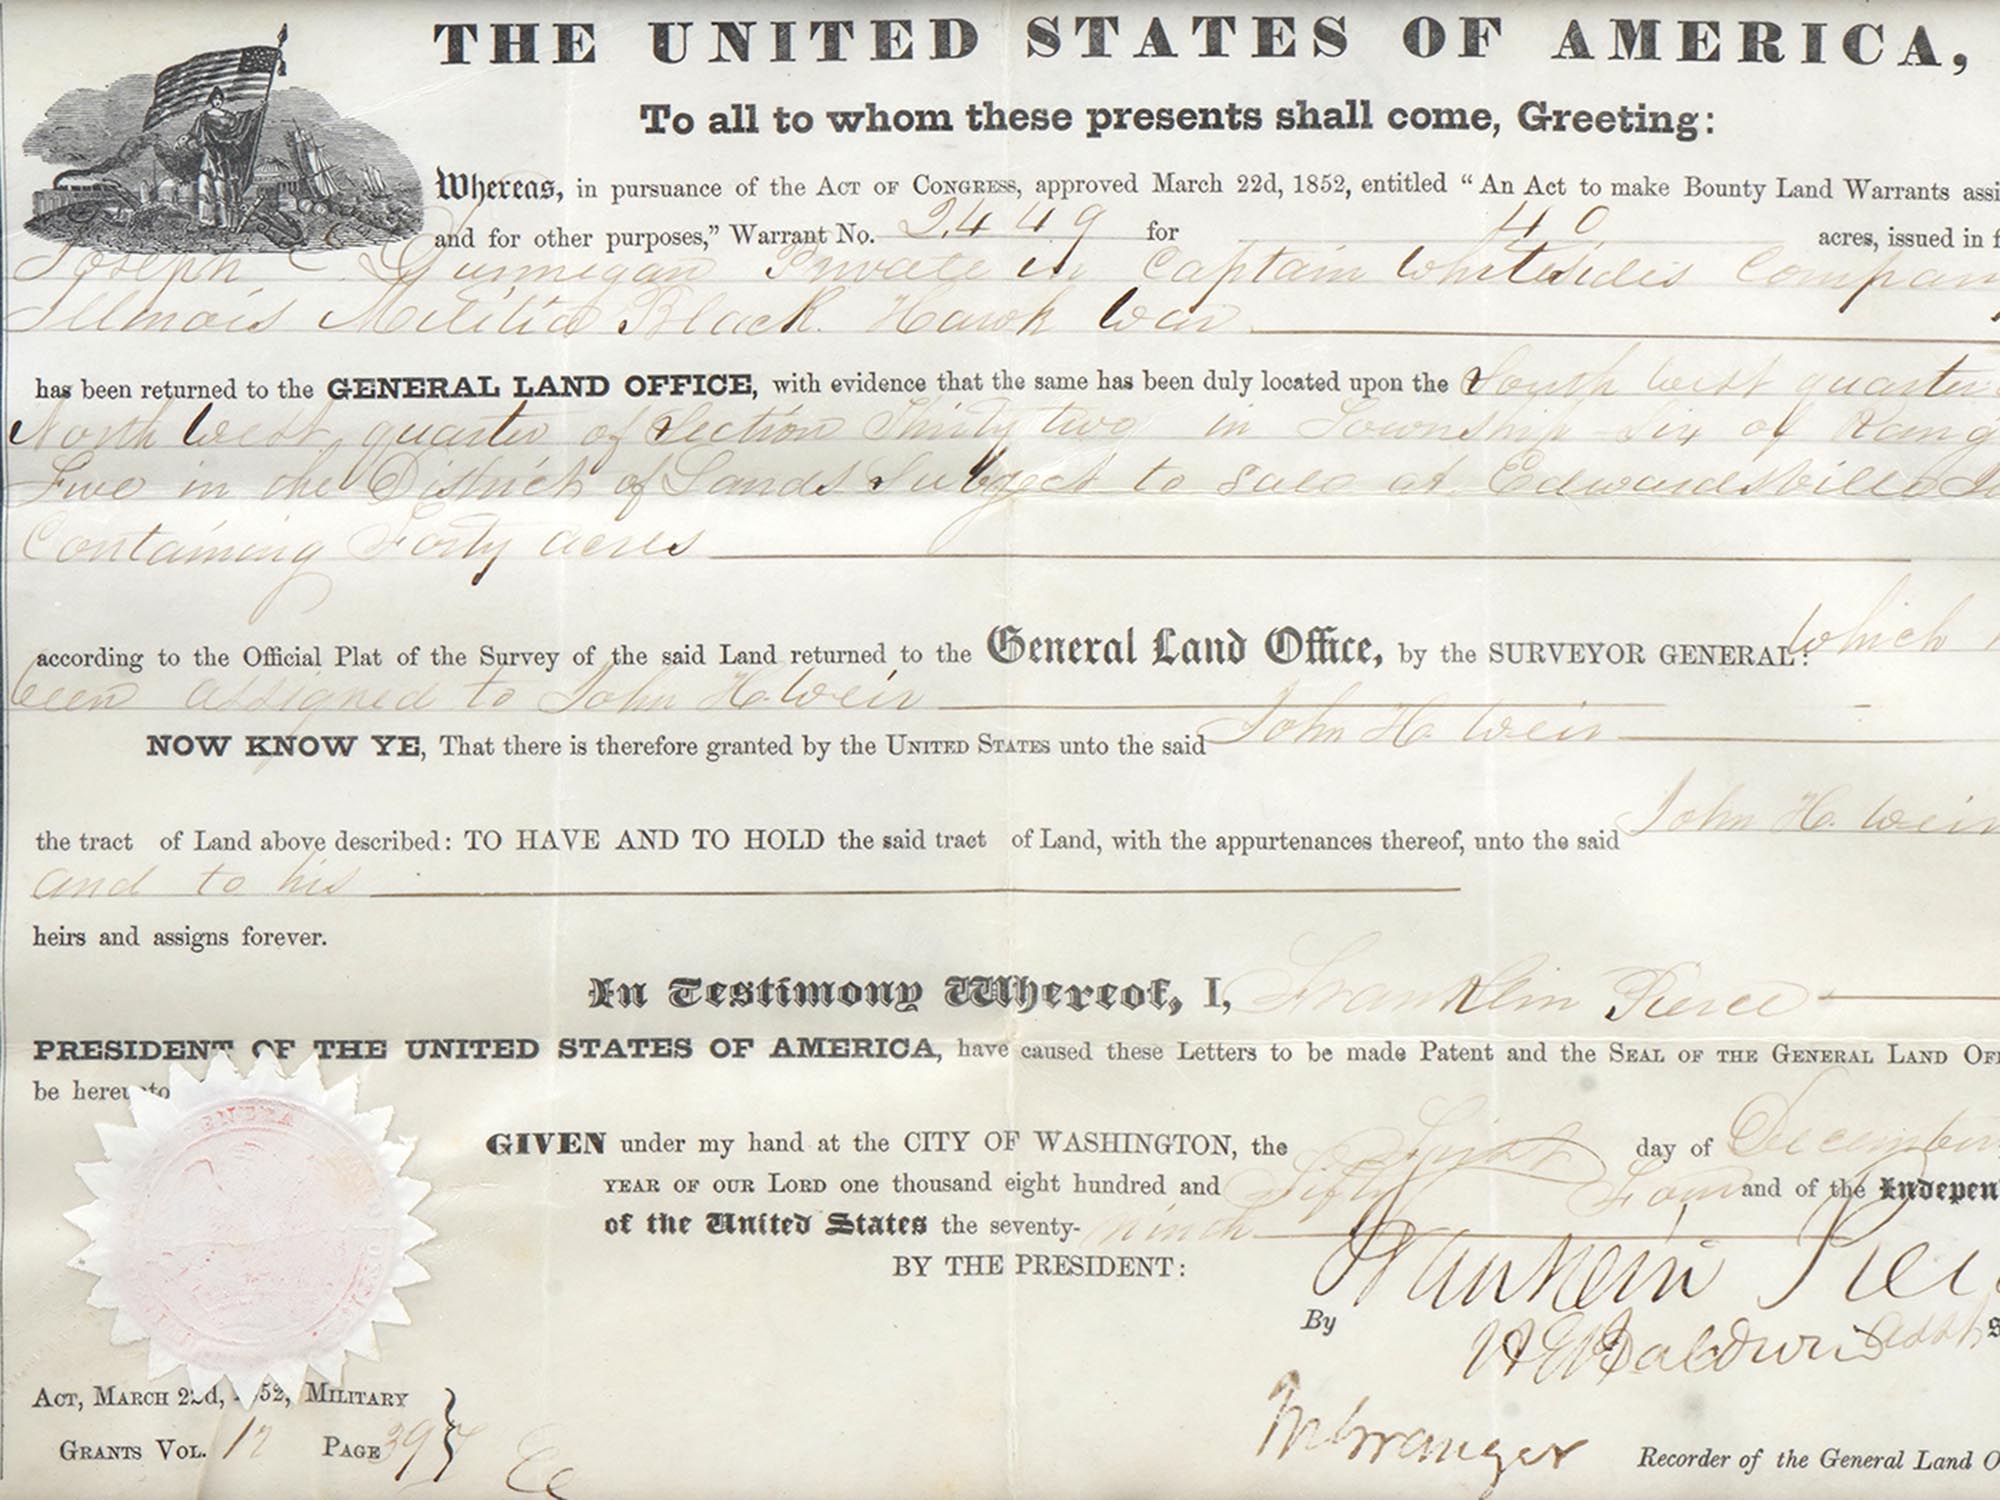 THE UNITED STATES OF AMERICA,
To all to whom these presents shall come, Greeting:
Whereas, in pursuance of the Act of Congress, approved March 22d, 1852, entitled "An Act to make Bounty Land Warrants assi
and for other purposes," Warrant No. 2449 for 40 acres, issued in f
Joseph C Dunnegan Private in Captain Whitesides Compan
Illinois Militia Black Hawk War
has been returned to the GENERAL LAND OFFICE, with evidence that the same has been duly located upon the South West quarter
North West quarter of Section Thirty two in Township Six of Rang
Five in the District of Lands Subject to Sale at Edwardsville
Containing Forty acres
according to the Official Plat of the Survey of the said Land returned to the General Land Office, by the SURVEYOR GENERAL: which
been assigned to John H. Weir
NOW KNOW YE, That there is therefore granted by the United States unto the said John H. Weir
the tract of Land above described: TO HAVE AND TO HOLD the said tract of Land, with the appurtenances thereof, unto the said John H. Weir
and to his
heirs and assigns forever.
In Testimony Whereof, I, Franklin Pierce
PRESIDENT OF THE UNITED STATES OF AMERICA, have caused these Letters to be made Patent and the Seal of the General Land Off
be hereunto
GENERA
GIVEN under my hand at the CITY OF WASHINGTON, the First day of December
year of our Lord one thousand eight hundred and Fifty Four and of the Indepen
of the United States the seventy-ninth
BY THE PRESIDENT: Franklin Pierc
By H E Baldwin Asst S
Act, March 22d, 1852, Military
Grants Vol. 17 Page 397
M Granger Recorder of the General Land O